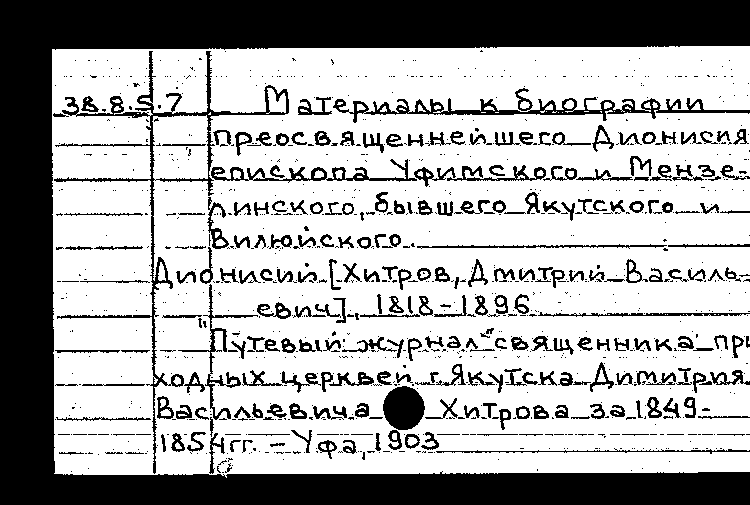 38.8.5.7 Материалы к биографии
преосвященнейшего Дионисия
епископа Уфимского и Мензе-
линского, бывшего Якутского и
Вилюйского.
Дионисий [Хитров, Дмитрий Василь-
евич], 1818-1896
"Путевый журнал" священника при
ходных церквей г. Якутска Димитрия
Васильевича Хитрова за 1849-
1854гг. - Уфа, 1903